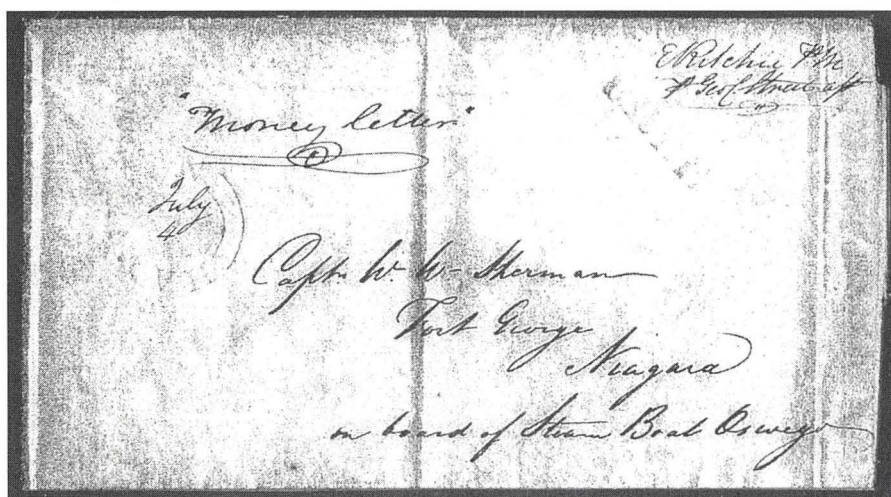 E Ritchie PM
P Geo C Street asst
"Money letter"
July
4
Captn W. W- Sherman
Fort George
Niagara
on board of Steam Boat Oswego